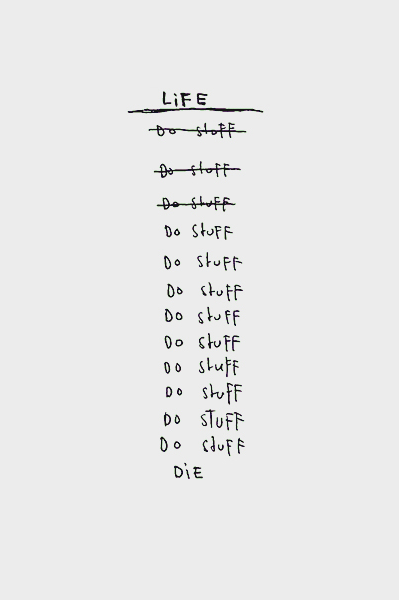 LiFE
Do stuFF
Do stuFF
Do stuFF
Do stuFF
Do stuFF
Do stuFF
Do stuFF
Do stuFF
Do stuFF
Do stuFF
Do STuFF
Do stuFF
DiE